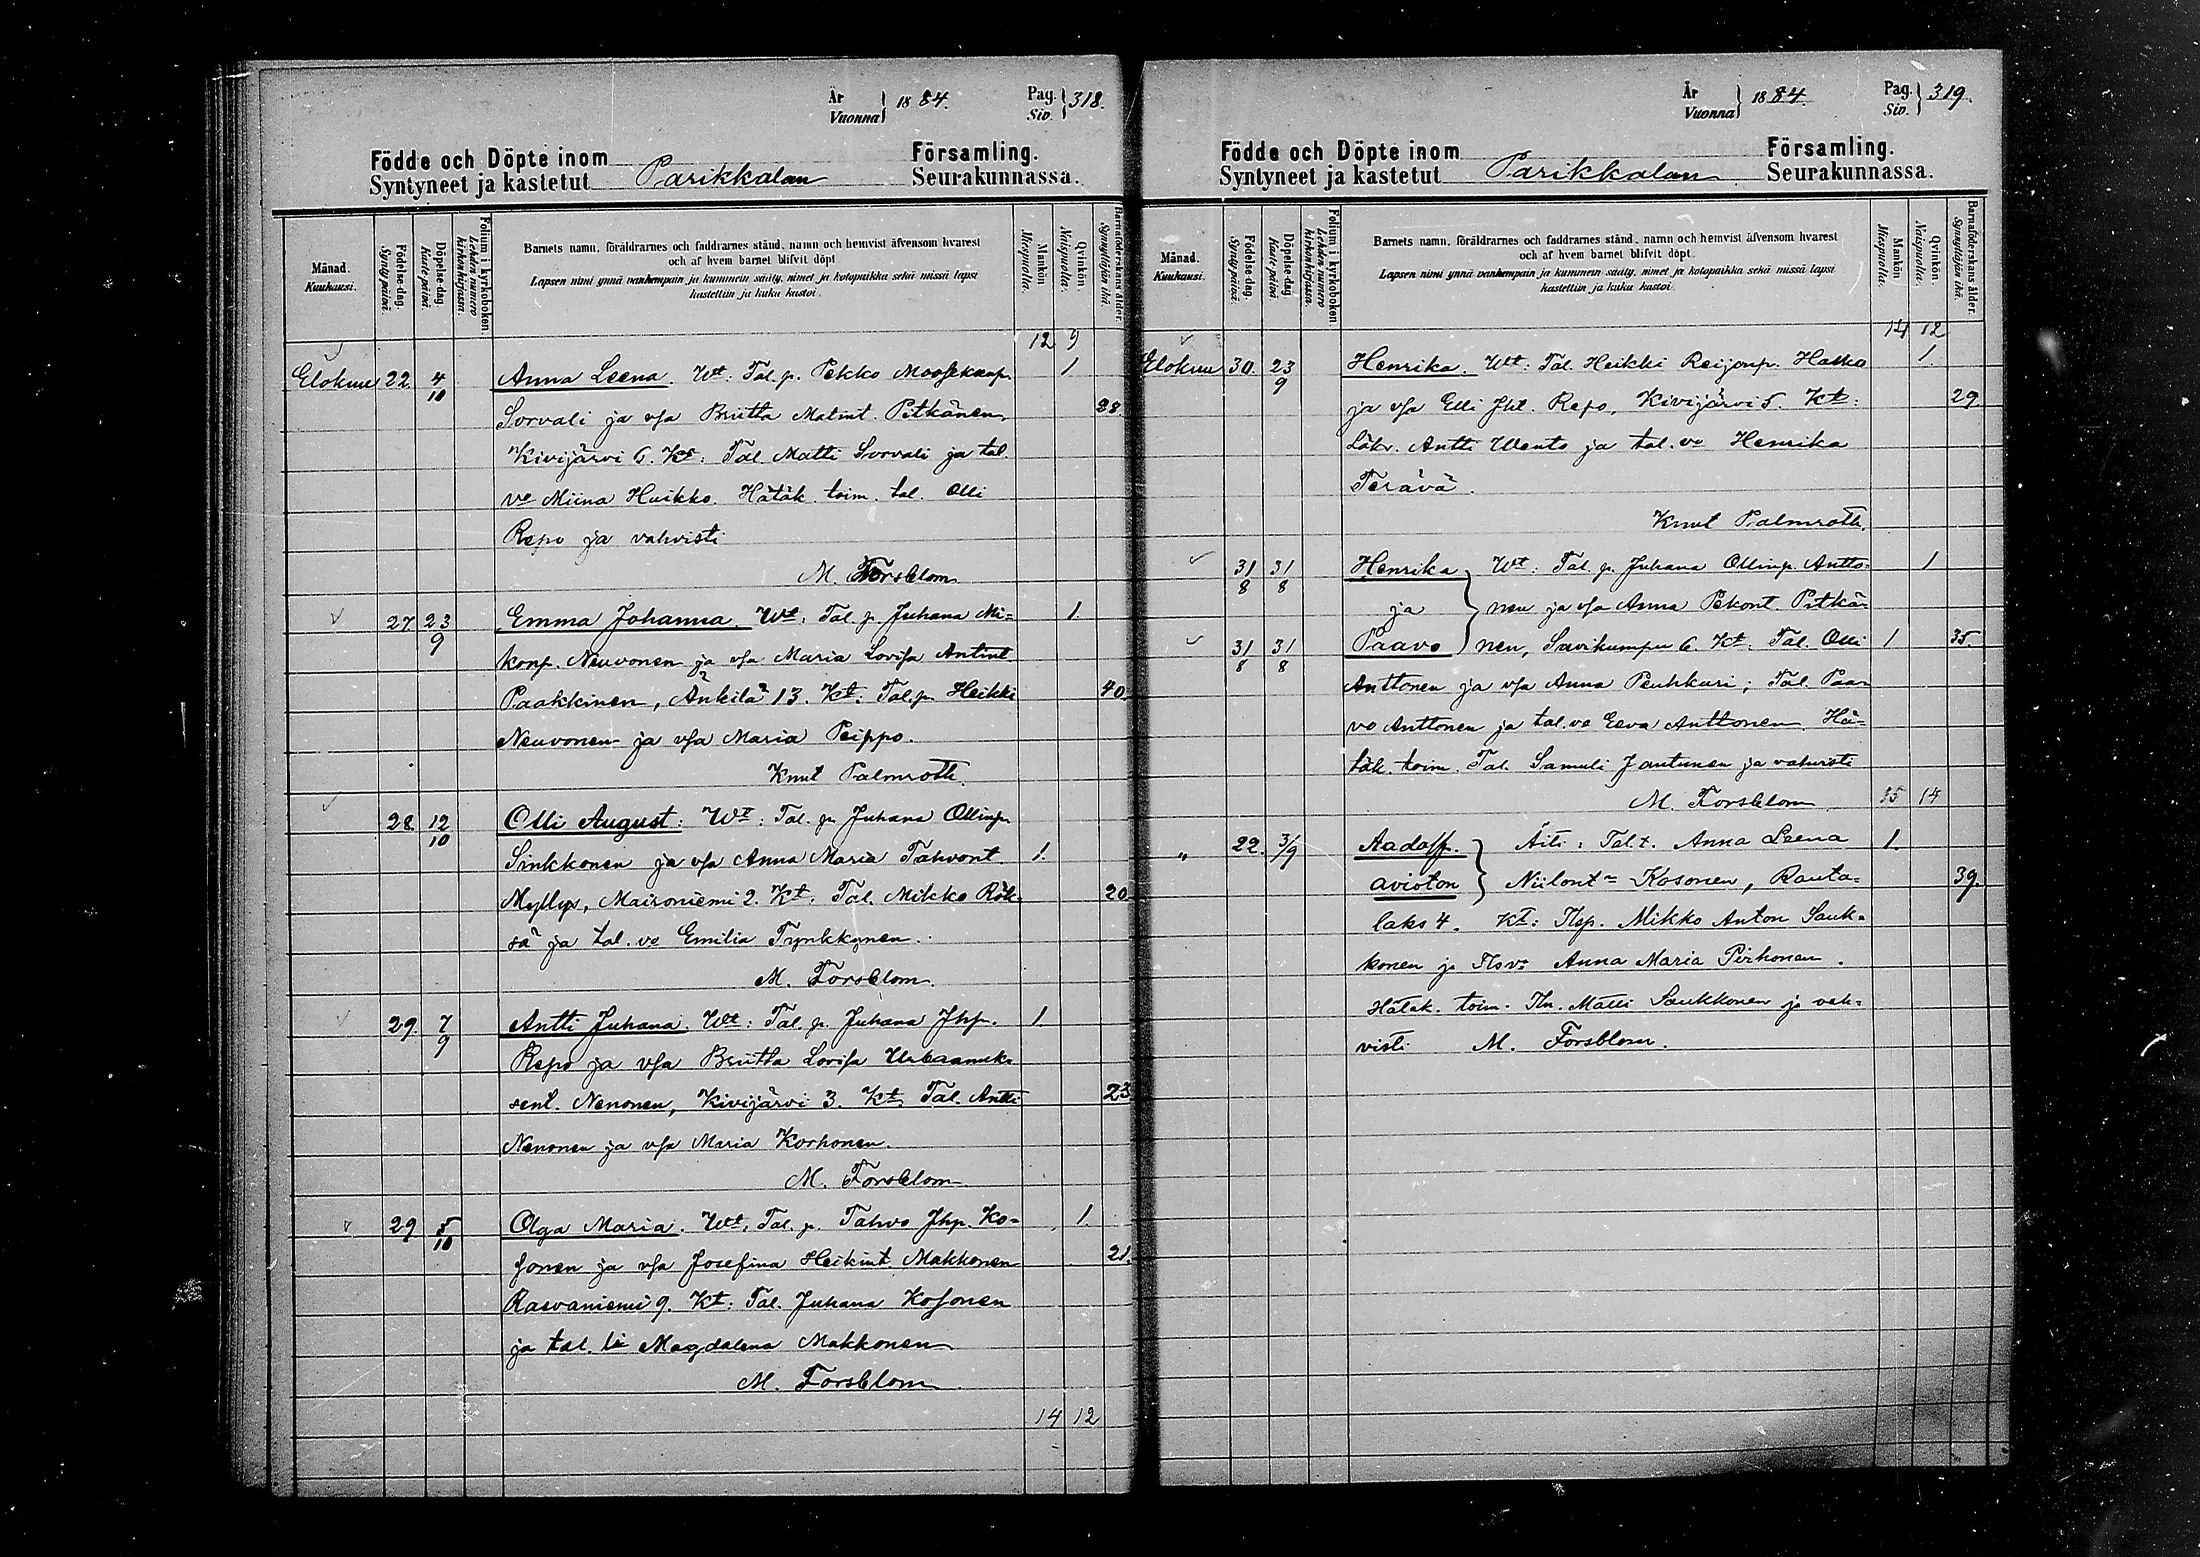 År Vuonna } 1884. Pag. Siv. } 318.
Födde och Döpte inom Parikkalan Församling.
Syntyneet ja kastetut Seurakunnassa.
Månad. Kuukausi.
Födelse-dag. Synty päivä.
Döpelse-dag. Kaste päivä.
Folium i kyrkoboken. Lehden numero kirkonkirjassa.
Barnets namn, föräldrarnes och faddrarnes stånd, namn och hemvist äfvensom hvarest
och af hvem barnet blifvit döpt
Lapsen nimi ynnä vanhempain ja kummein sääty, nimet ja kotopaikka sekä missä lapsi
kastettiin ja kuka kastoi.
Mankön Miespuolta.
Qvinkön. Naispuolta.
Barnaföderskans ålder. Synnyttäjän ikä.
12 9
Elokuu 22 4/10 Anna Leena. Wt: Tal. p. Pekko 1
Sorvali ja vfa Briitta Matint. Pitkänen 28.
Kivijärvi 6. Kt: Tal. Matti Sorvali ja tal.
vo Miina Huikko. Hätäk. toim. tal. Olli
Repo ja vahvisti
M. Forsblom
27 23/9 Emma Johanna. Wt: Tal. p. Juhana Mi=
konp. Neuvonen ja vfa Maria Lovisa Antint.
Paakkinen, Ankila? 13. Kt: Tal. p. Heikki 40.
Neuvonen ja vfa Maria Peippo.
Knut Palmroth.
28 12/10 Olli August: Wt: Tal. p. Juhana Ollinp.
Sinkkonen ja vfa Anna Maria Tahvont. 1.
Myllys, Maironiemi 2. Kt. Tal. Mikko Rök= 20
sä ja tal. vo Emilia Tynkkynen.
M. Forsblom.
29. 7/9 Antti Juhana. Wt: Tal. p. Juhana Jhp. 1.
Repo ja vfa Briitta Lovisa Urbaanuk=
sent. Nenonen, Kivijärvi 3. Kt. Tal. Antti 23
Nenonen ja vfa Maria Korhonen.
M. Forsblom
29 5/10 Olga Maria. Wt. Tal. p. Tahvo Jhp. Ko= 1.
sonen ja vfa Josefina Heikint Makkonen 21.
Rasvaniemi 9. Kt: Tal. Juhana Kosonen
ja tal. Magdalena Makkonen
M. Forsblom.
14 12
År Vuonna } 1884. Pag. Siv. } 319.
Födde och Döpte inom Parikkalan Församling.
Syntyneet ja kastetut Seurakunnassa.
Månad. Kuukausi.
Födelse-dag. Synty päivä.
Döpelse-dag. Kaste päivä.
Folium i kyrkoboken Lehden numero kirkonkirjassa.
Barnets namn, föräldrarnes och faddrarnes stånd, namn och hemvist äfvensom hvarest
och af hvem barnet blifvit döpt.
Lapsen nimi ynnä vanhempain ja kummein sääty, nimet ja kotopaikka sekä missä lapsi
kastettiin ja kuka kastoi.
Mankön Miespuolta.
Qvinkön. Naispuolta.
Barnaföderskans ålder. Synnyttäjän ikä.
14 12
Elokuu 30. 23/9 Henrika. Wt: Tal. Heikki Reijonp. Haska 1.
ja vfa Elli Jht. Repo, Kivijärvi 5. Kt: 29
Läkr. Antti Wento ja tal. vo Henrika
Terävä.
Knut Palmroth.
31/8 31/8 Henrika Wt: Tal. p. Juhana Ollinp. Antto= 1
ja nen ja vfa Anna Pekont. Pitkä=
31/8 31/8 Paavo nen, Savikumpu 6. Kt. Tal. Olli 1 35.
Anttonen ja vfa Anna Peuhkuri; Tal. Paa=
vo Anttonen ja tal. vo Eeva Anttonen. Hä=
täk. toim. Tal. Samuli Jantunen ja vahvisti
M. Forsblom 15 14
" 22. 3/9 Aadolf. Äiti: Tal. t. Anna Leena 1.
avioton Niilont Kosonen, Rauta= 39.
laks 4. Kt: Tlsp. Mikko Anton Sauk=
konen ja Tlsvo Anna Maria Pirhonen.
Hätäk. toim. Tln. Matti Saukkonen ja vah=
visti M. Forsblom.